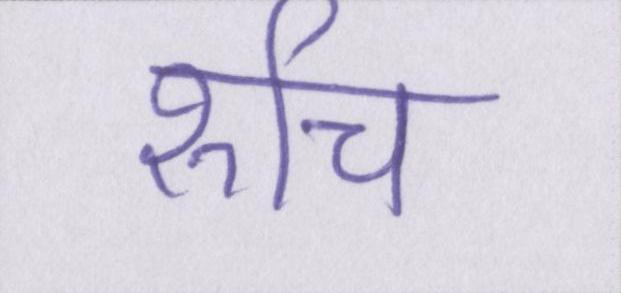 रूचि